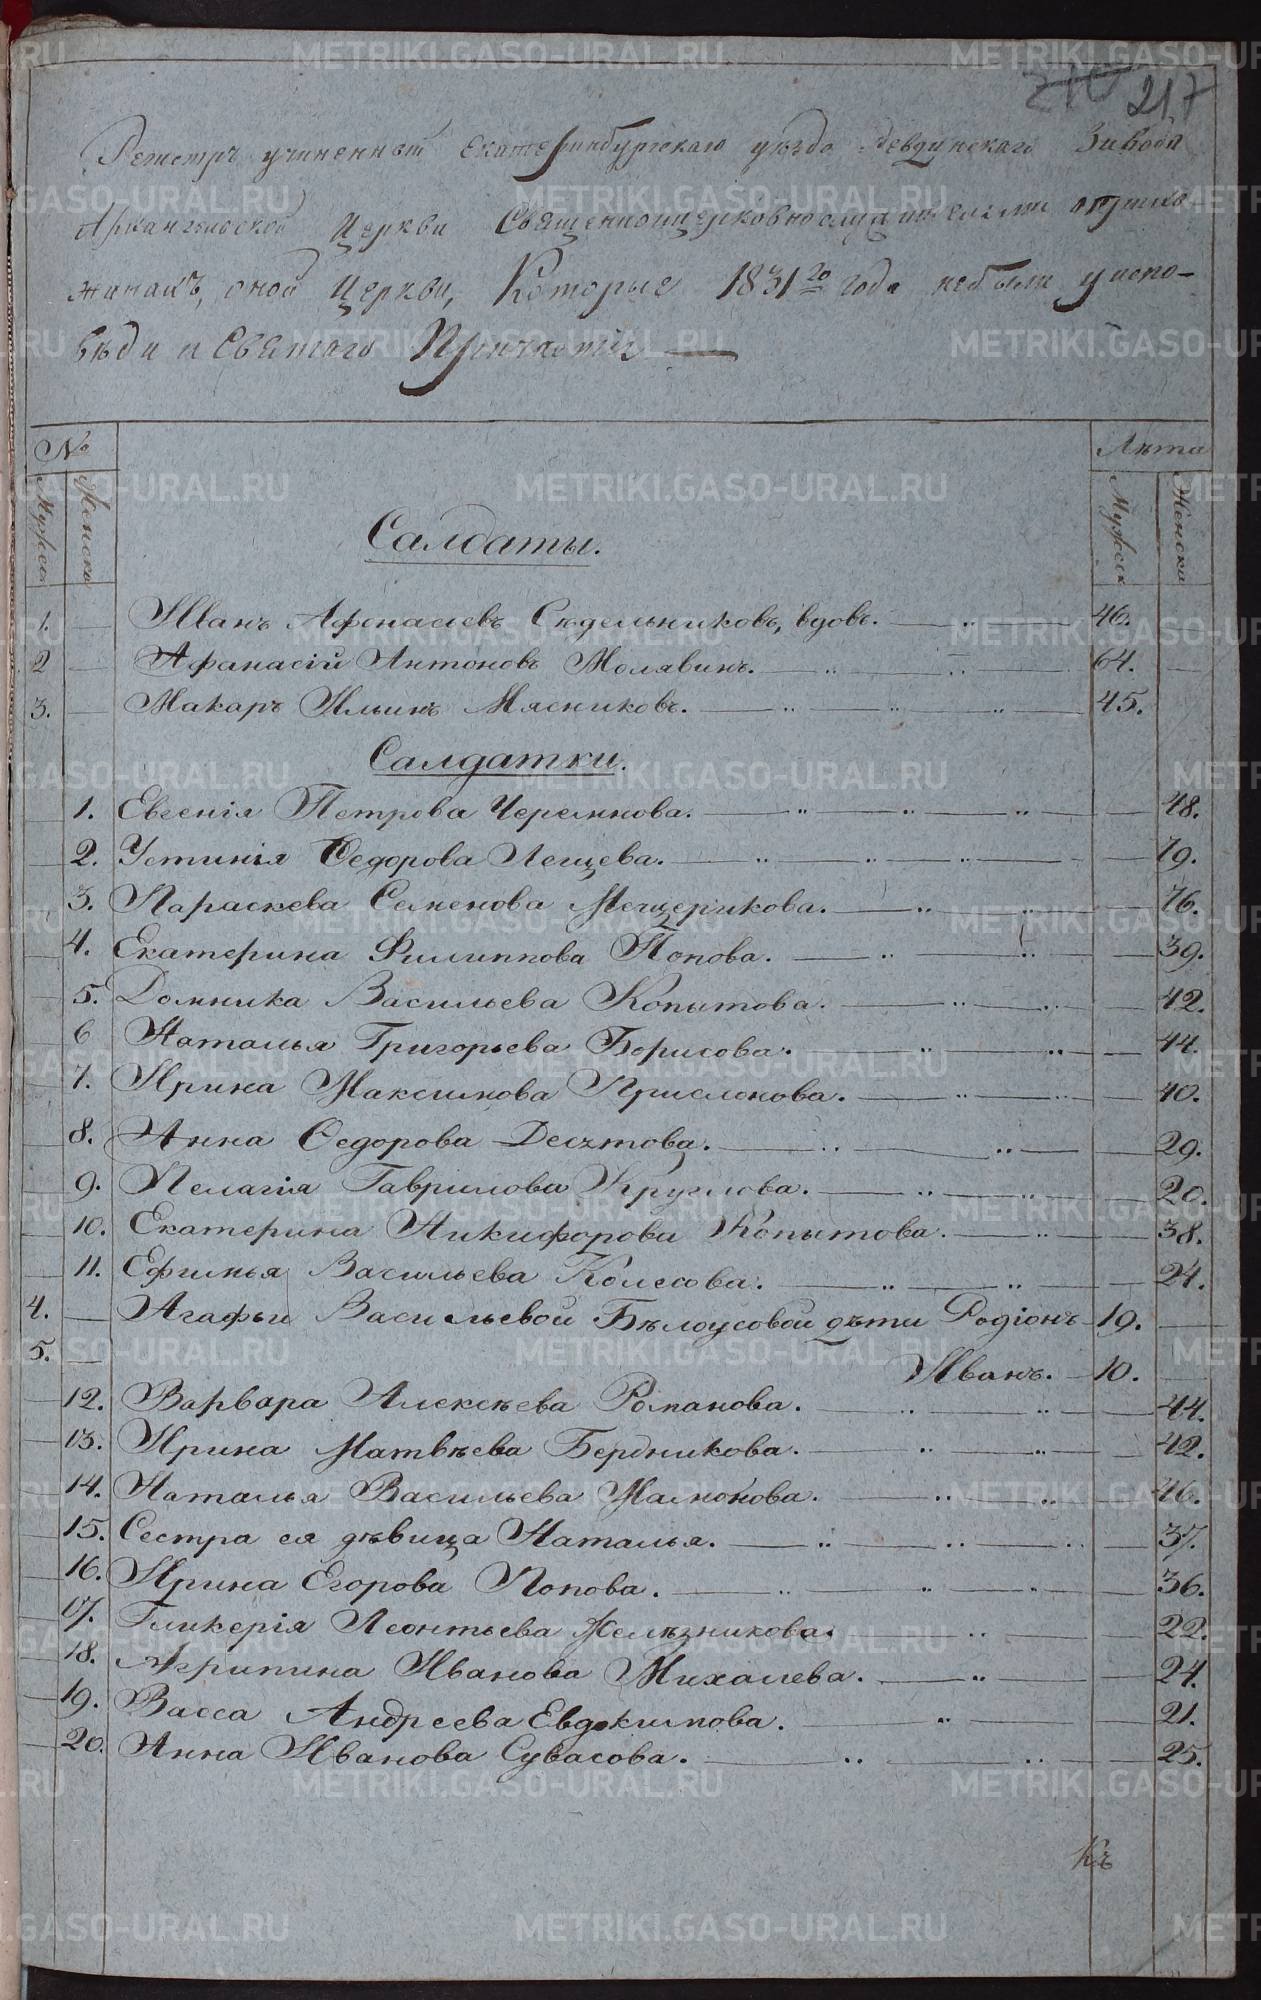 217
Регистръ учиненный Екатеринбургскаго уѣзда Ревдинскаго Завода
Архангельской Церкви Священноцерковнослужителями о прихо
жанахъ, оной Церкви, Которые 1831го года небыли у испо-
вѣди и Святаго Причастія
№ Лѣта
Мужеск Женска Мужеск Женска
Салдаты.
1. Иванъ Афонасьевъ Сѣдельниковъ, вдовъ. 46.
2 Афанасій Антоновъ Молявинъ. 64.
3. Макаръ Ильинъ Мясниковъ. 45.
Салдатки.
1. Евгенія Петрова Черемнова. 48.
2. Устинія Ѳедорова Лещева. 79.
3. Параскева Семенова Мещерикова. 76.
4. Екатерина Филиппова Попова. 39.
5. Домника Васильева Копытова. 42.
6 Наталья Григорьева Борисова. 44.
7. Ирина Максимова Прислонова. 40.
8. Анна Ѳедорова 29.
9. Пелагія Гаврилова Круглова. 20.
10. Екатерина Никифорова Копытова. 38.
11. Ефимья Васильева Колесова. 24.
4. Агафьи Васильевой Бѣлоусовой дѣти Родіонъ 19.
5. Иванъ. 10.
12. Варвара Алексѣева Романова. 44.
13. Ирина Матвѣева Бердникова. 42.
14. Наталья Васильева Мамонова. 46.
15. Сестра ея дѣвица Наталья. 37.
16. Ирина Егорова Попова. 36.
17. Гликерія Леонтьева Желѣзникова. 22.
18. Агрипина Иванова Михалева. 24.
19. Васса Андреева Евдокимова. 21.
20. Анна Иванова Сувасова. 25.
Къ
METRIKI.GASO-URAL.RU